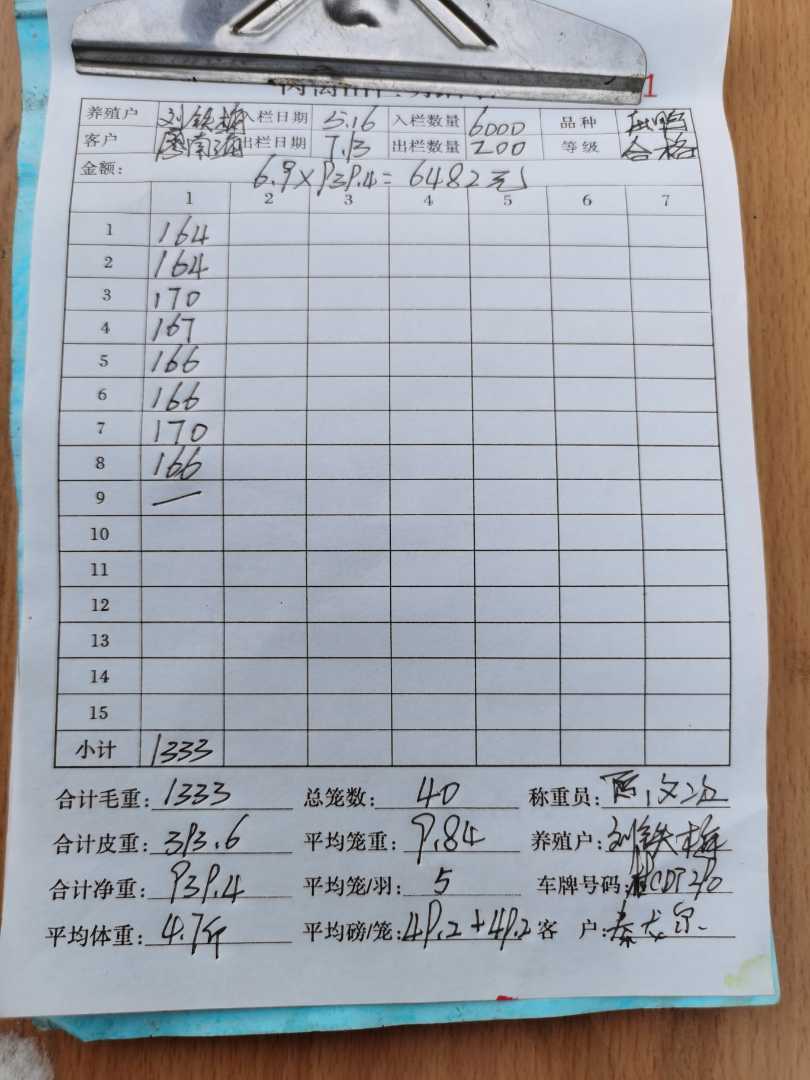 1
养殖户 刘铁梅 入栏日期 5.16 入栏数量 6000 品种
客户 出栏日期 7.13 出栏数量 200 等级 合格
金额: 6.9×939.4=6482元
1 2 3 4 5 6 7
1 164
2 164
3 170
4 167
5 166
6 166
7 170
8 166
9 —
10
11
12
13
14
15
小计 1333
合计毛重: 1333 总笼数: 40 称重员:
合计皮重: 393.6 平均笼重: 9.84 养殖户: 刘铁梅
合计净重: 939.4 平均笼/羽: 5 车牌号码:
平均体重: 4.7斤 平均磅/笼: 49.2+49.2 客 户: